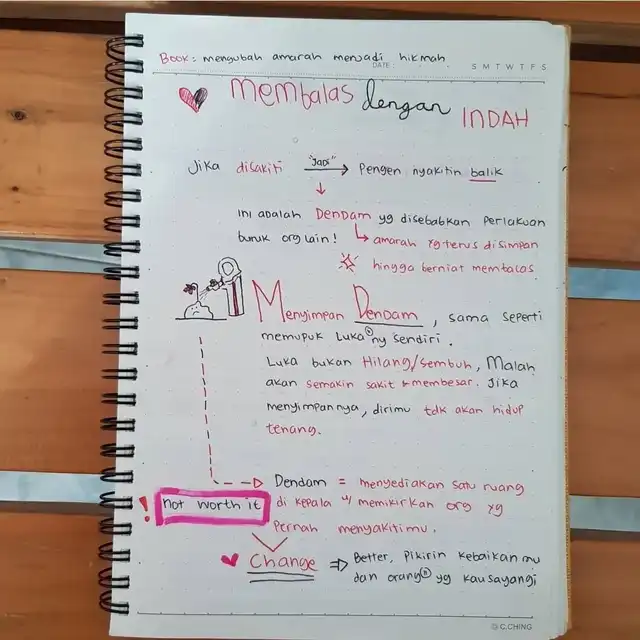 Book: mengubah amarah menjadi hikmah
DATE: S M T W T F S
membalas dengan INDAH
Jika disakiti "Jadi" → Pengen nyakitin balik
Ini adalah DENDAM yg disebabkan Perlakuan
buruk org lain! ↳ amarah yg terus disimpan
hingga berniat membalas
Menyimpan DENDAM, sama seperti
memupuk luka②ny sendiri.
Luka bukan Hilang/Sembuh, Malah
akan semakin sakit + membesar. Jika
menyimpannya, dirimu tdk akan hidup
tenang.
Dendam = menyediakan satu ruang
! not worth it di kepala u/ memikirkan org yg
Pernah menyakitimu.
Change ⇒ Better, Pikirin kebaikan mu
dan orang② yg kau sayangi
© C.CHING